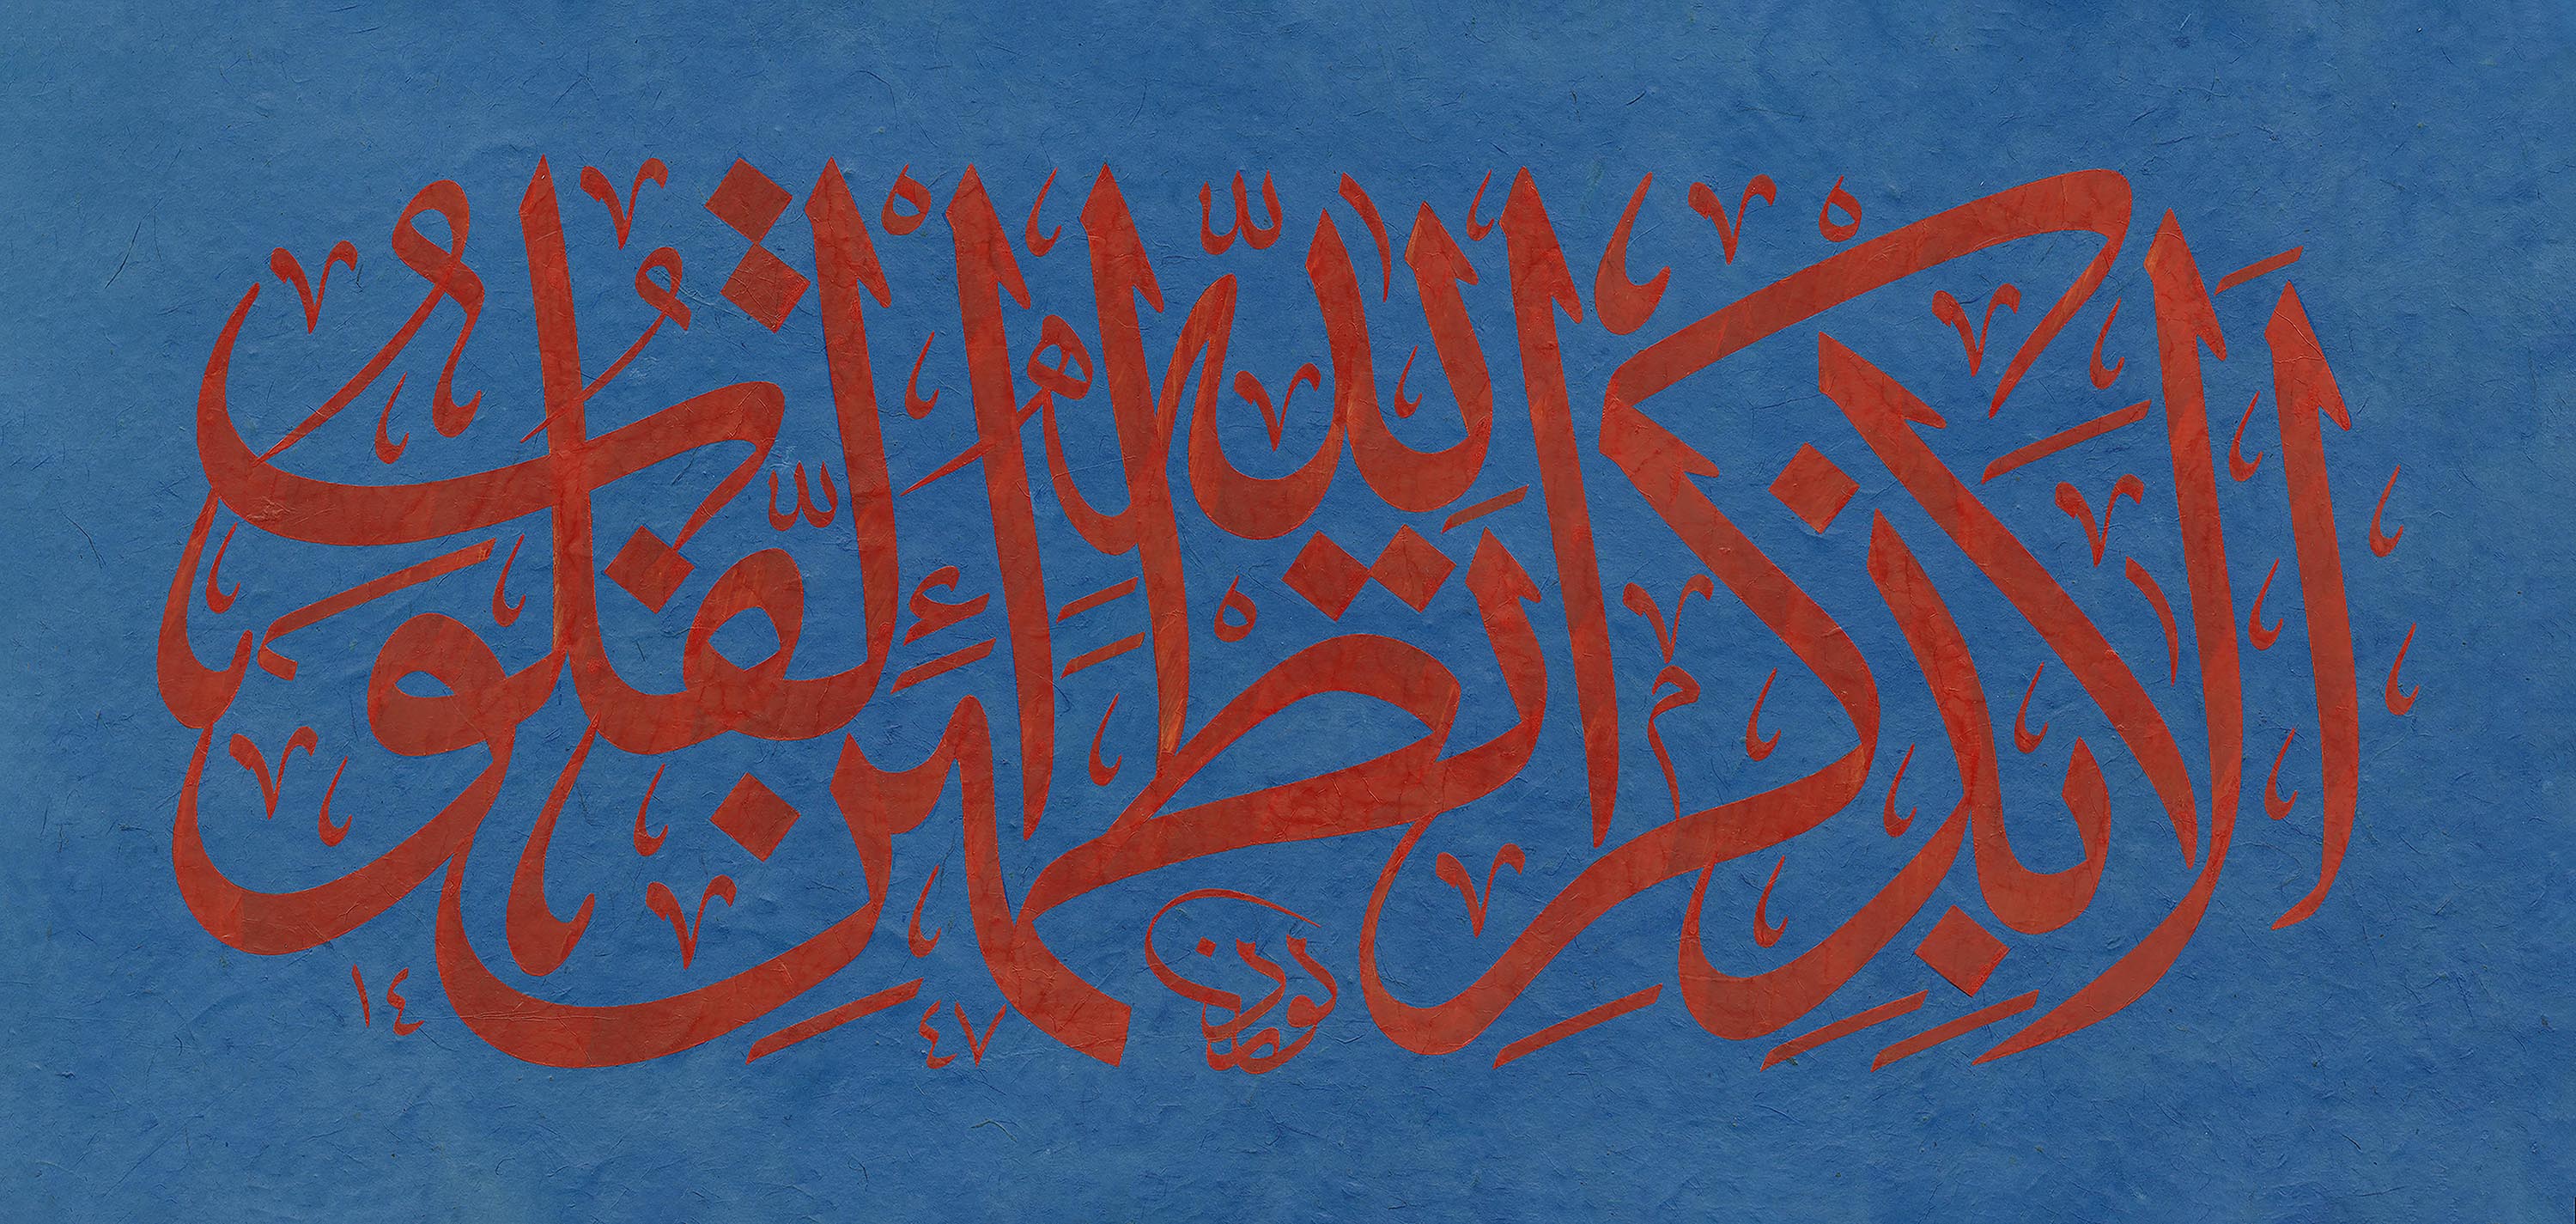 أَلَا بِذِكْرِ اللَّهِ تَطْمَئِنُّ الْقُلُوبُ
١٤٤٧